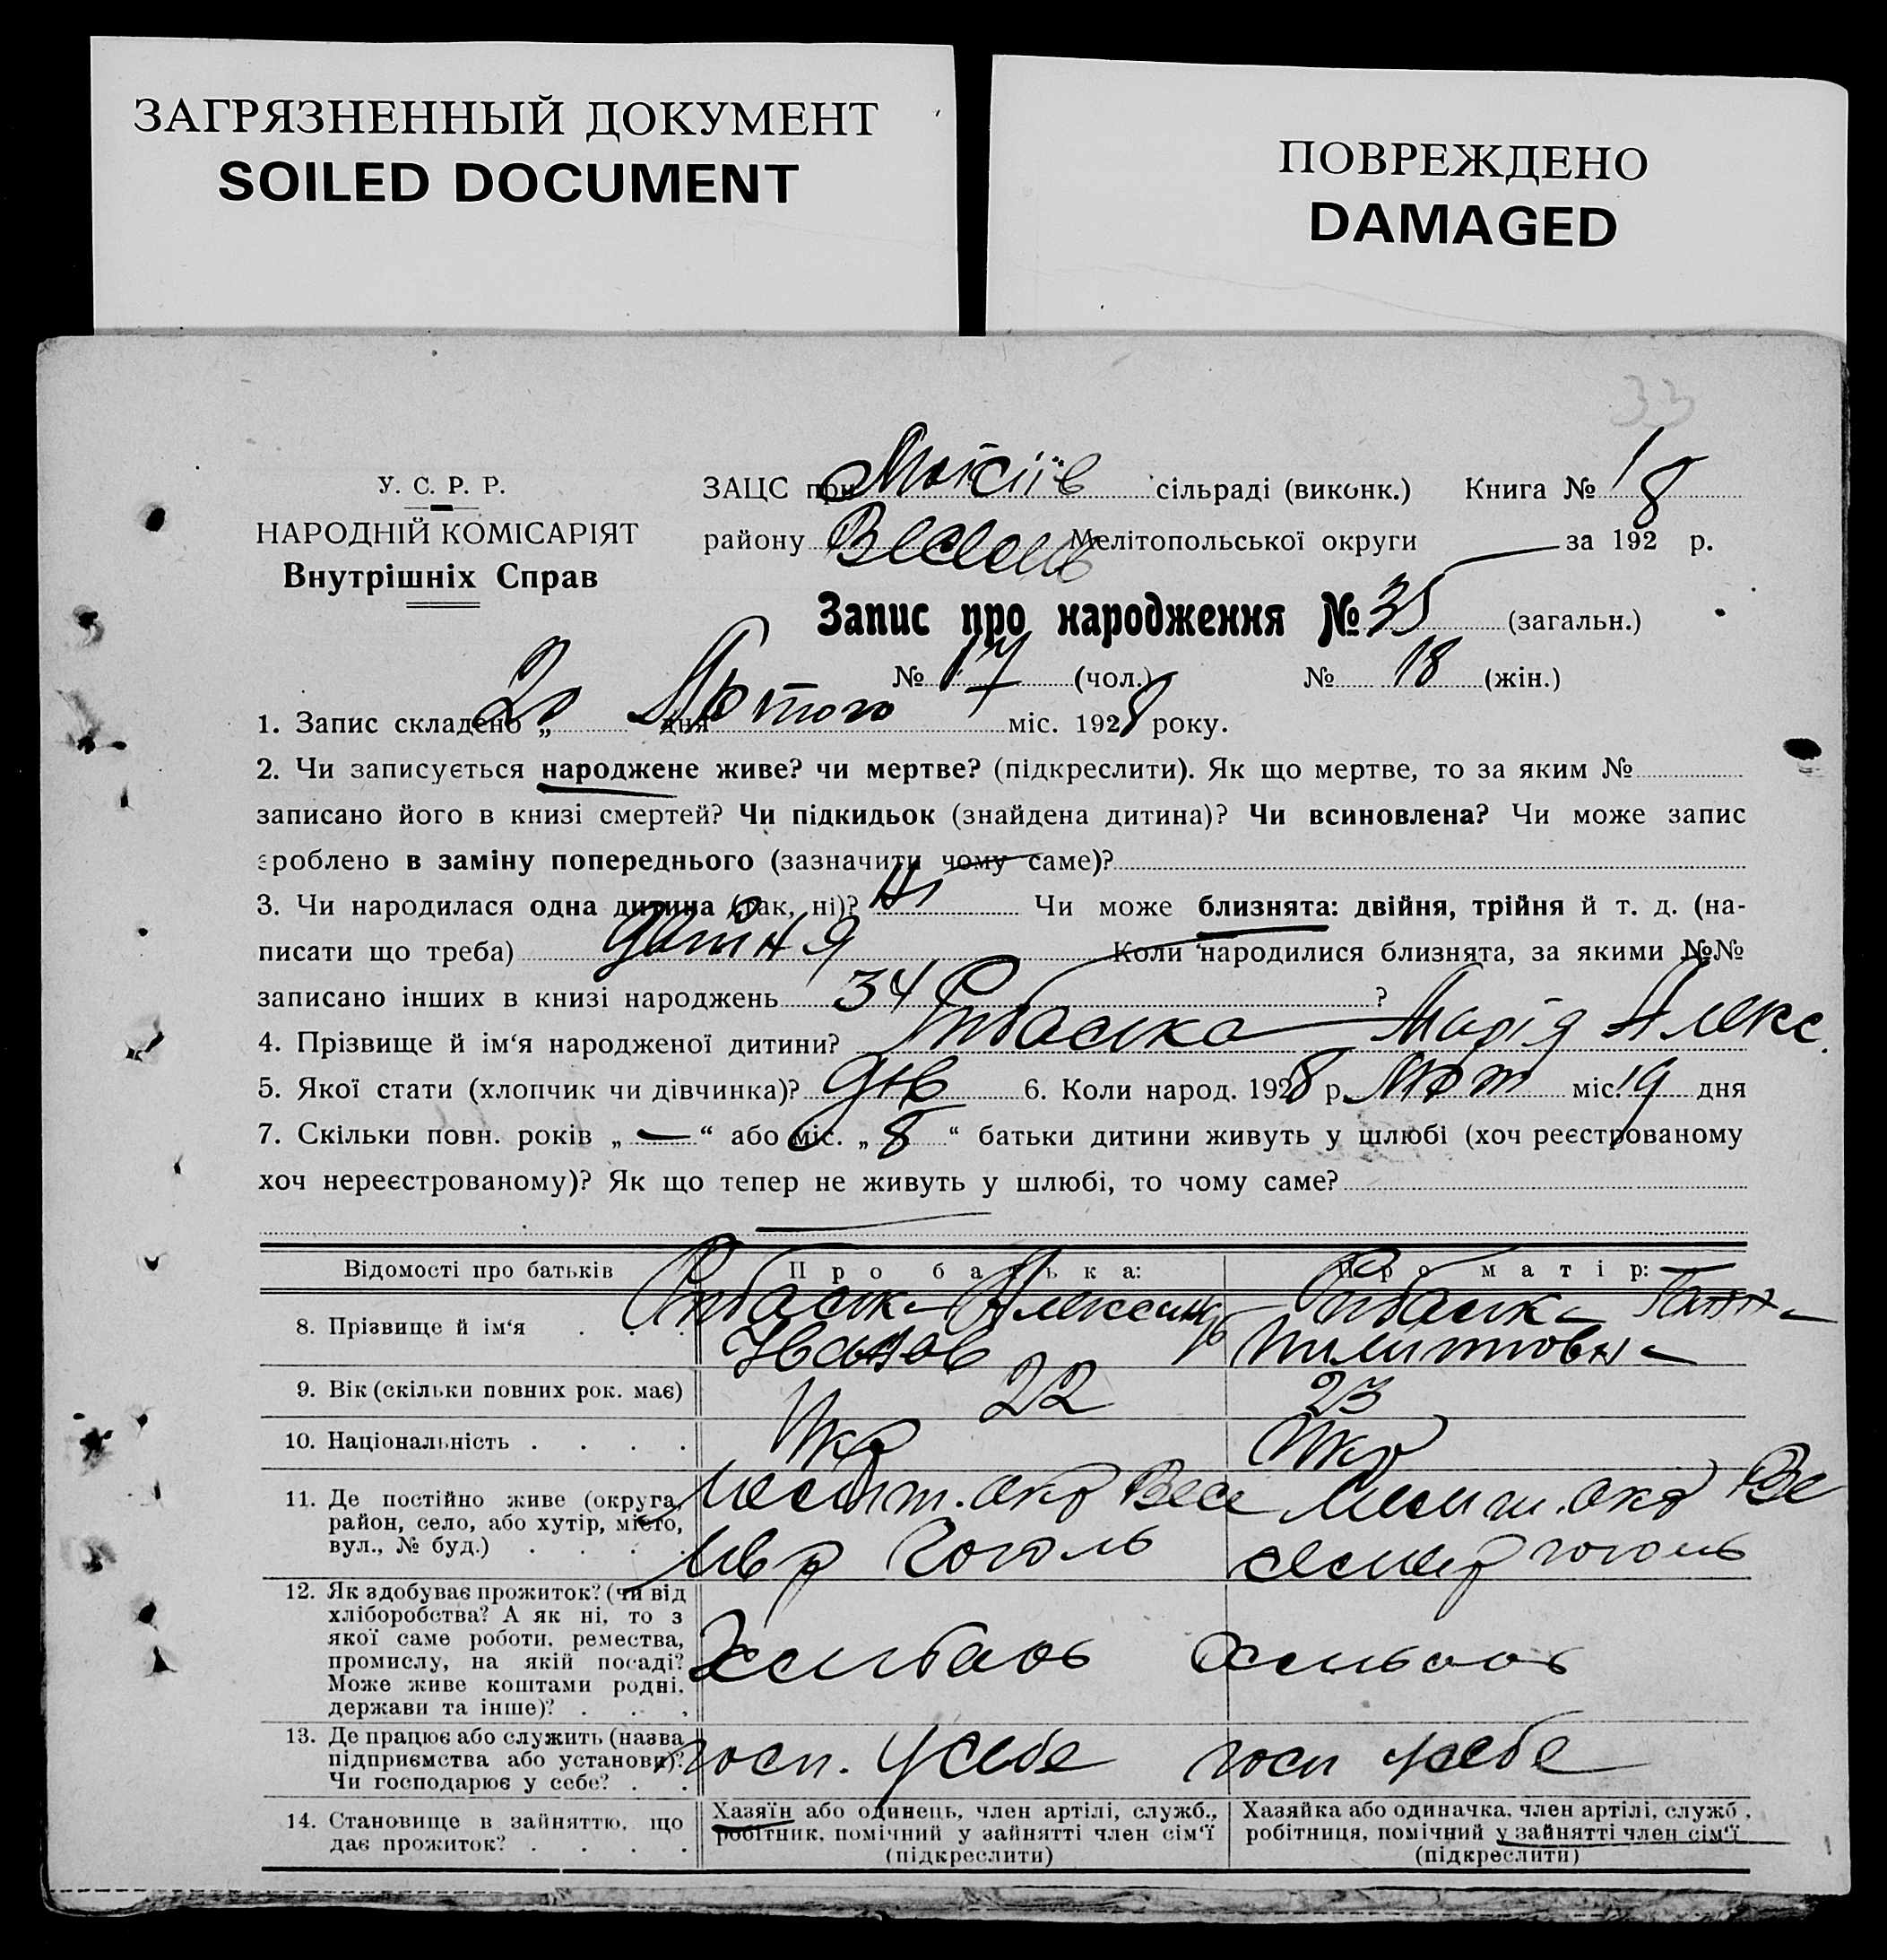 ЗАГРЯЗНЕННЫЙ ДОКУМЕНТ
SOILED DOCUMENT
ПОВРЕЖДЕНО
DAMAGED
33
У. С. Р. Р.
НАРОДНІЙ КОМІСАРІЯТ
Внутрішніх Справ
ЗАЦС при Мокіїв сільраді (виконк.) Книга № 18
району Весел Мелітопольської округи за 192 р.
Запис про народження № 35 (загальн.)
№ 17 (чол.) № 18 (жін.)
1. Запис складено „ 20 дня Лютого міс. 1928 року.
2. Чи записується народжене живе? чи мертве? (підкреслити). Як що мертве, то за яким №
записано його в книзі смертей? Чи підкидьок (знайдена дитина)? Чи всиновлена? Чи може запис
зроблено в заміну попереднього (зазначити чому саме)?
3. Чи народилася одна дитина (так, ні)? Ні Чи може близнята: двійня, трійня й т. д. (на-
писати що треба) двійня Коли народилися близнята, за якими №№
записано інших в книзі народжень 34 ?
4. Прізвище й ім‘я народженої дитини? Рибалка Марія Алекс.
5. Якої стати (хлопчик чи дівчинка)? дів 6. Коли народ. 1928 р. Лют міс. 19 дня
7. Скільки повн. років „ — “ або міс. „ 8 “ батьки дитини живуть у шлюбі (хоч реєстрованому
хоч нереєстрованому)? Як що тепер не живуть у шлюбі, то чому саме?
Відомості про батьків Про батька: Про матір:
8. Прізвище й ім‘я . . . Рибалка Александр Рибалка Ганна
Иванов Пилиповна
9. Вік (скільки повних рок. має) 22 23
10. Національність . . . . Укр Укр
11. Де постійно живе (округа, район, село, або хутір, місто, вул., № буд.) . . . .
Мелит. окр Весе Мелит. окр Ве
Гоголь гоголь
12. Як здобуває прожиток? (чи від
хліборобства? А як ні, то з
якої саме роботи, ремества,
промислу, на якій посаді?
Може живе коштами родні,
держави та інше)? . . .
13. Де працює або служить (назва
підприємства або установи)?
Чи господарює у себе? . .
госп. у себе госп у себе
14. Становище в зайняттю, що
дає прожиток? . . . .
Хазяїн або одинець, член артілі, служб.,
робітник, помічний у зайнятті член сім‘ї
(підкреслити)
Хазяйка або одиначка, член артілі, служб.,
робітниця, помічний у зайнятті член сім‘ї
(підкреслити)